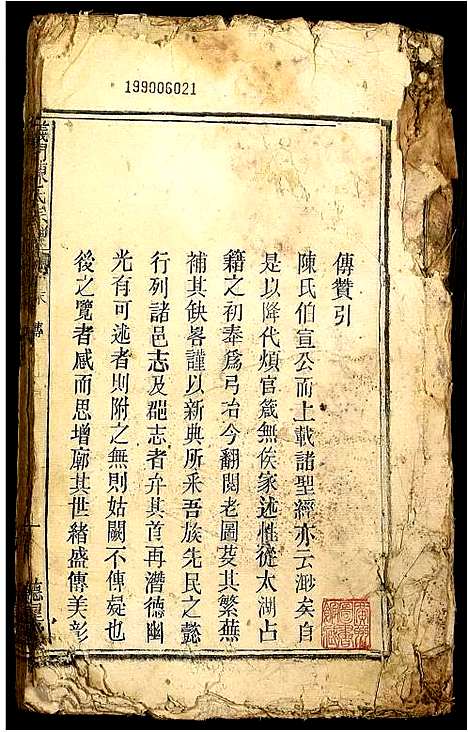 199006021
傳贊引
陳氏伯宣公而上載諸聖經亦云渺矣自
是以降代煩官箴無俟家述惟從太湖占
籍之初奉爲弓冶今翻閱老圖芟其繁蕪
補其缺畧謹以新典所采吾族先民之懿
行列諸邑志及郡志者弁其首再潛德幽
光有可述者則附之無則姑闕不傳疑也
後之覽者感而思增廓其世緒盛傳美彰